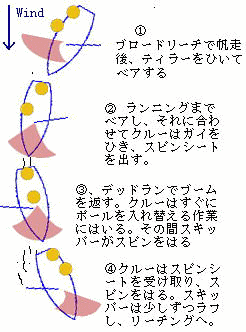 Wind
①
ブロードリーチで帆走
後、ティラーをひいて
ベアする
② ランニングまで
ベアし、それに合わ
せてクルーはガイを
ひき、スピンシート
を出す。
③、デッドランでブーム
を返す。クルーはすぐに
ポールを入れ替える作業
にはいる。その間スキッ
パーがスピンをはる
④クルーはスピンシ
ートを受け取り、ス
ピンをはる。スキッ
パーは少しずつラフ
し、リーチングへ。